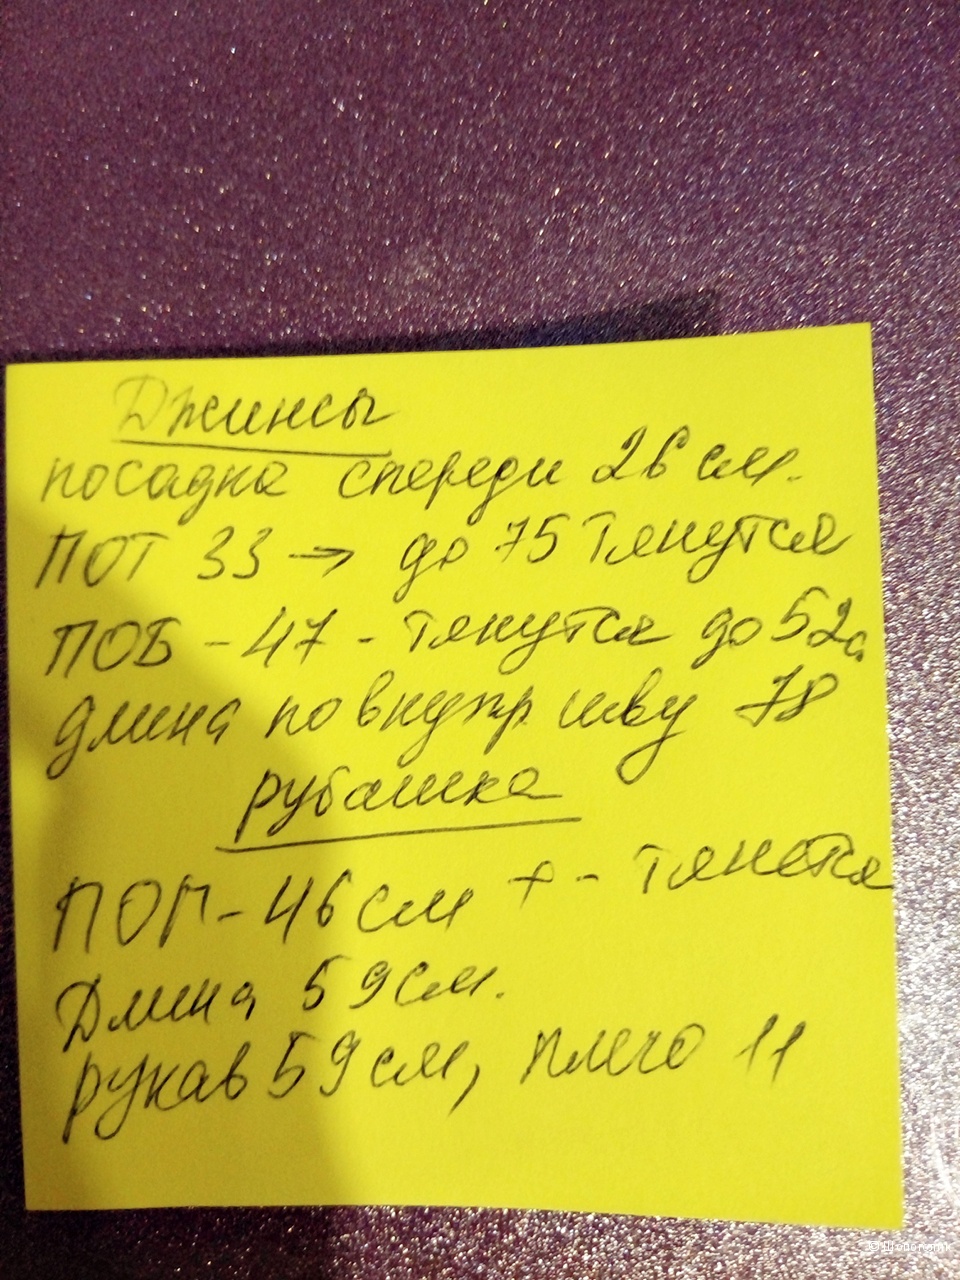 Джинсы
посадка спереди 26 см.
ПОТ 33 → до 75 тянутся
ПОБ - 47 - тянутся до 52с
длина по внутр шву 78
рубашка
ПОГ - 46 см + - тянется
Длина 59 см.
рукав 59 см, плечо 11